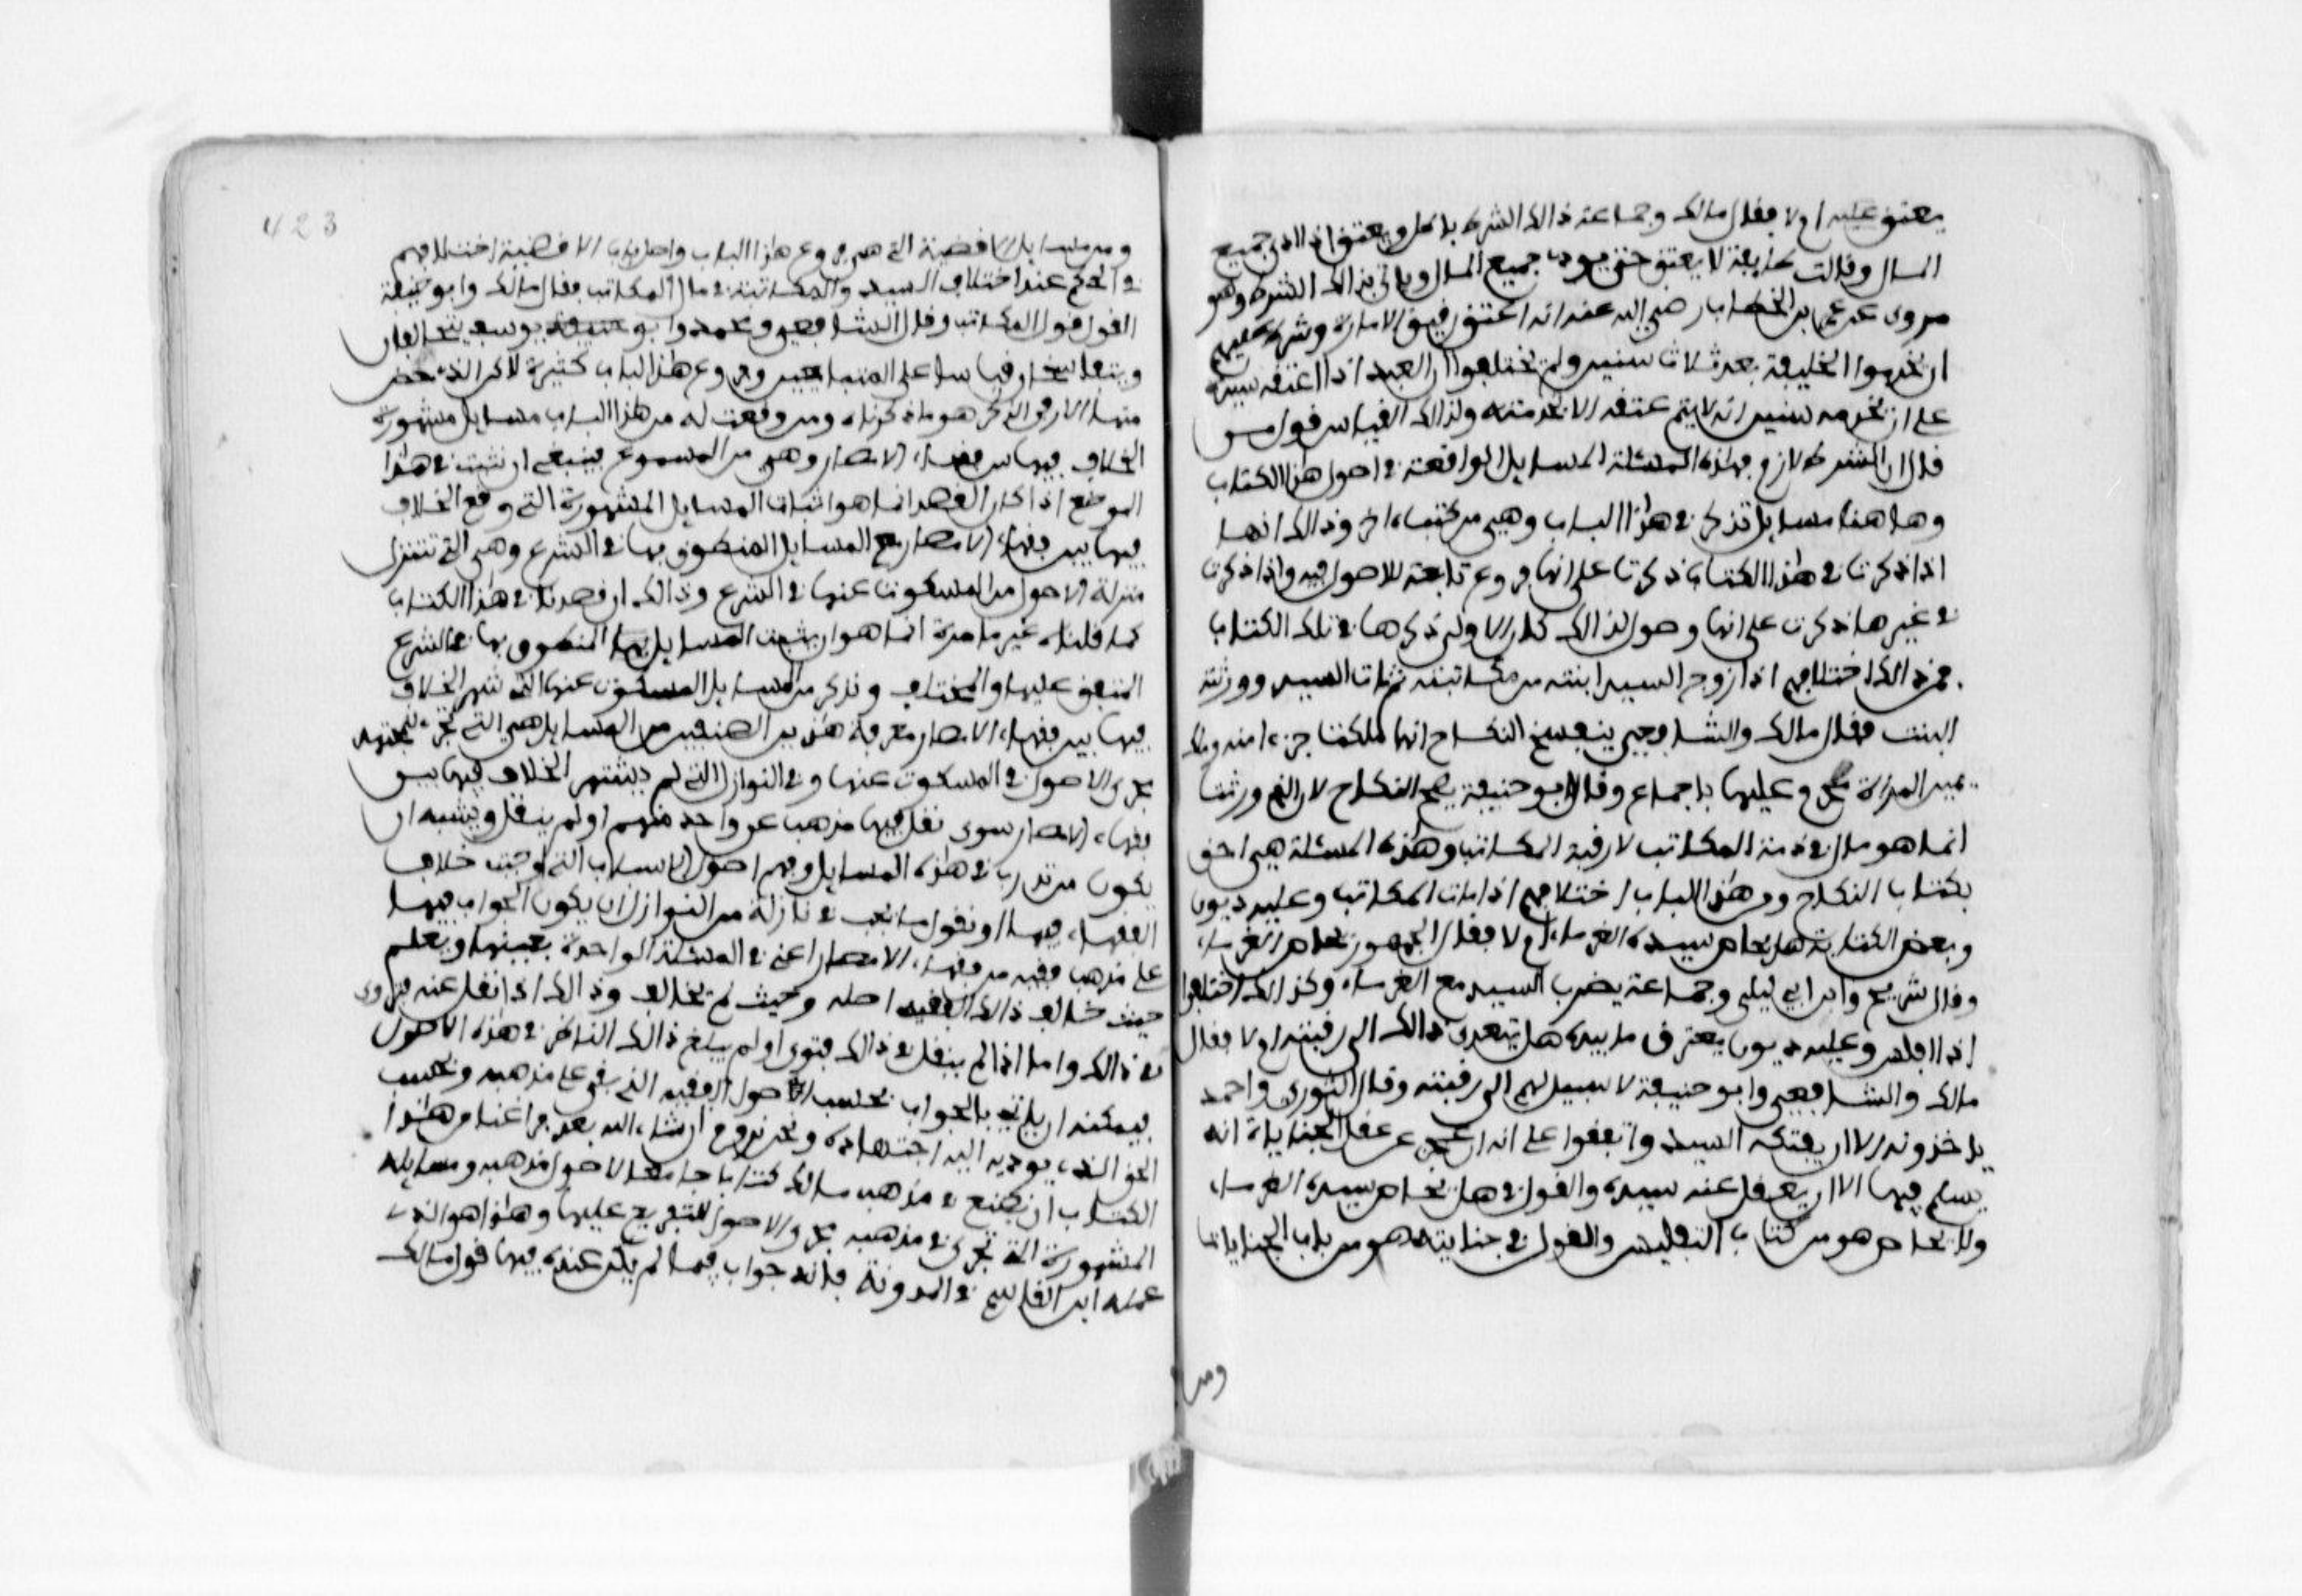 يعتق عليه ام لا فقال مالك وجماعة ذالك الشرط باطل ويعتق اذا ادى جميع
المال وقالت طايفة لا يعتق حتى يودي جميع المال ويأتي بذالك الشرط وهو
مروي عن عمر بن الخطاب رضي الله عنه انه اعتق رقيق الامارة وشرط عليهم
ان يخدموا الخليفة بعد ثلاث سنين ولم يختلفوا ان العبد اذا اعتقه سيده
على ان يخدمه سنين انه لا يتم عتقه الا بخدمته ولذالك القياس قول من
قال ان الشرط لازم فهذه المسئلة المسايل الواقعة في اصول هذا الكتاب
وها هنا مسايل تذكر في هذا الباب وهي من كتب اخر وذالك انها
اذا ذكرت في هذا الكتاب ذكرت على انها فروع تابعة للاصول فيه واذا ذكرت
في غيرها ذكرت على انها وصول لذالك كان الاولى ذكرها في تلك الكتاب
فمن ذالك اختلافهم اذا زوج السيد ابنته من مكاتبه ثم مات السيد وورثته
البنت فقال مالك والشافعي ينفسخ النكاح انها ملكت جزءا منه وملك
يمين المراة محرم عليها باجماع وقال ابو حنيفة يصح النكاح لان الذي ورثت
انما هو مال في ذمة المكاتب لا رقبة المكاتب وهذه المسئلة هي احق
بكتاب النكاح ومن هذا الباب اختلافهم اذا مات المكاتب وعليه ديون
وبعض الكتابة هل يحاص سيده الغرماء ام لا فقال الجمهور لا يحاص الغرماء
وقال شريح وابن ابي ليلى وجماعة يضرب السيد مع الغرماء وكذالك اختلفوا
اذا افلس وعليه ديون يغترق ما بيده هل يتعدى ذالك الى رقبته ام لا فقال
مالك والشافعي وابو حنيفة لا سبيل لهم الى رقبته وقال الثوري واحمد
ياخذونه الا ان يفتكه السيد واتفقوا على انه ان عجز عن عقل الجنايات انه
يسلم فيها الا ان يعقل عنه سيده والقول في هل يحاص سيده الغرماء
ولا يحاص هو من كتاب التفليس والقول في جنايته هو من باب الجنايات
ومن
423
ومن مسايل الاقضية التي هي فروع هذا الباب واصل باب الاقضية اختلافهم
في الحكم عند اختلاف السيد والمكاتب في مال المكاتب فقال مالك وابو حنيفة
القول قول المكاتب وقال الشافعي ومحمد وابو يوسف يتحالفان
ويتفاسخان قياسا على المتبايعين وفروع هذا الباب كثيرة لاكن الذي حضر
منها الان في الذكر هو ما ذكرناه ومن وقعت له من هذا الباب مسايل مشهورة
الخلاف فيها بين فقهاء الامصار وهي من المسموع فينبغي ان تثبت في هذا
الموضع اذا كان القصد انما هو اثبات المسايل المشهورة التي وقع الخلاف
فيها بين فقهاء الامصار مع المسايل المنطوق بها في الشرع وهي التي تتنزل
منزلة الاصول من المسكوت عنها في الشرع وذالك ان قصدنا في هذا الكتاب
كما قلناه غير ما مرة انما هو ان يثبت المسايل المنطوق بها في الشرع
المتفق عليها والمختلف ونذكر من المسايل المسكوت عنها التي شهر الخلاف
فيها بين فقهاء الامصار معرفة هذين الصنفين من المسايل هي التي تجري للمجتهد
مجرى الاصول في المسكوت عنها وفي النوازل التي لم يشتهر الخلاف فيها بين
فقهاء الامصار سوى نقل فيها مذهب عن واحد منهم او لم ينقل ويشبه ان
يكون من تدرب في هذه المسايل وفهم اصول الاسباب التي اوجبت خلاف
الفقهاء فيها او نقول ما يجب في نازلة من النوازل ان يكون الجواب فيها
على مذهب فقيه من فقهاء الامصار اعني في المسئلة الواحدة بعينها ويعلم
حيث خالف ذالك الفقيه اصله وحيث لم يخالف وذالك اذا نقل عنه فتوى
في ذالك واما اذا لم ينقل في ذالك فتوى او لم يبلغ ذالك الناظر في هذه الاصول
فيمكنه ان ياتي بالجواب بحسب اصول الفقيه الذي يفتي على مذهبه وبحسب
الحق الذي يوديه اليه اجتهاده ونحن نروم ان شاء الله بعد فراغنا من هذا
الكتاب ان نضع في مذهب مالك كتابا جامعا لاصول مذهبه ومسايله
المشهورة التي تجري في مذهبه مجرى الاصول للتفريع عليها وهذا هو الذي
عمله ابن القاسم في المدونة فانه جواب فيما لم يكن عنده فيها قول مالك